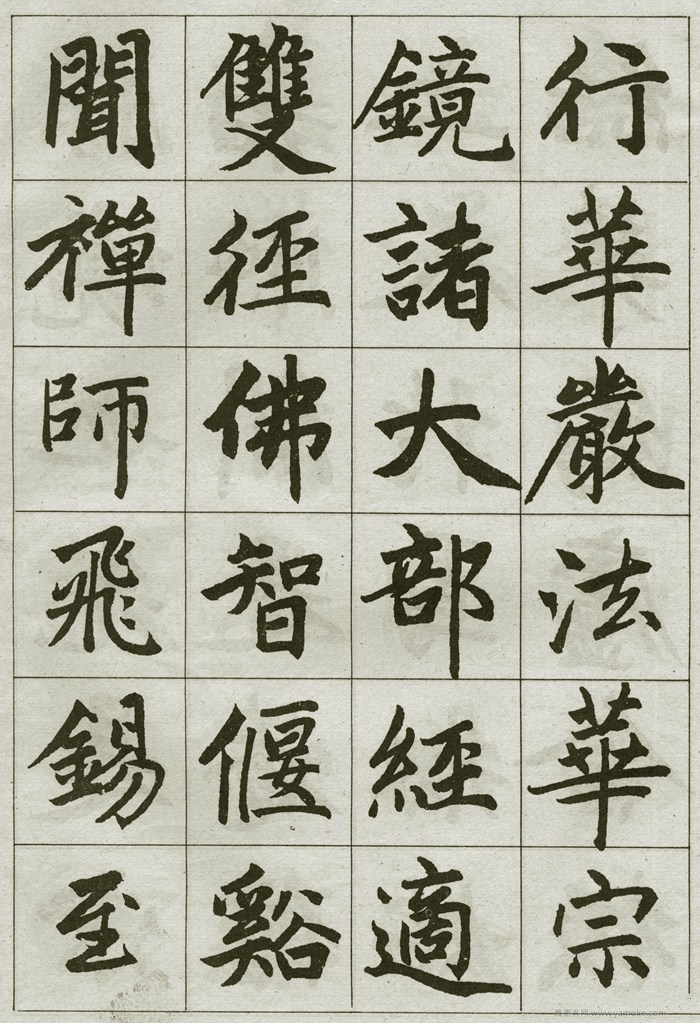 行華嚴法華宗
鏡諸大部經適
雙徑佛智偃谿
聞禪師飛錫至
www.yamoke.com